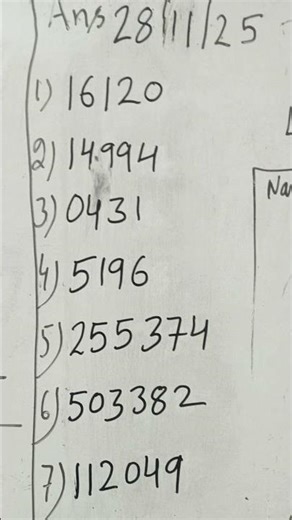 Ans 28/11/25
1) 16120
2) 14.994
3) 0431
4) 5196
5) 255374
6) 503382
7) 112049